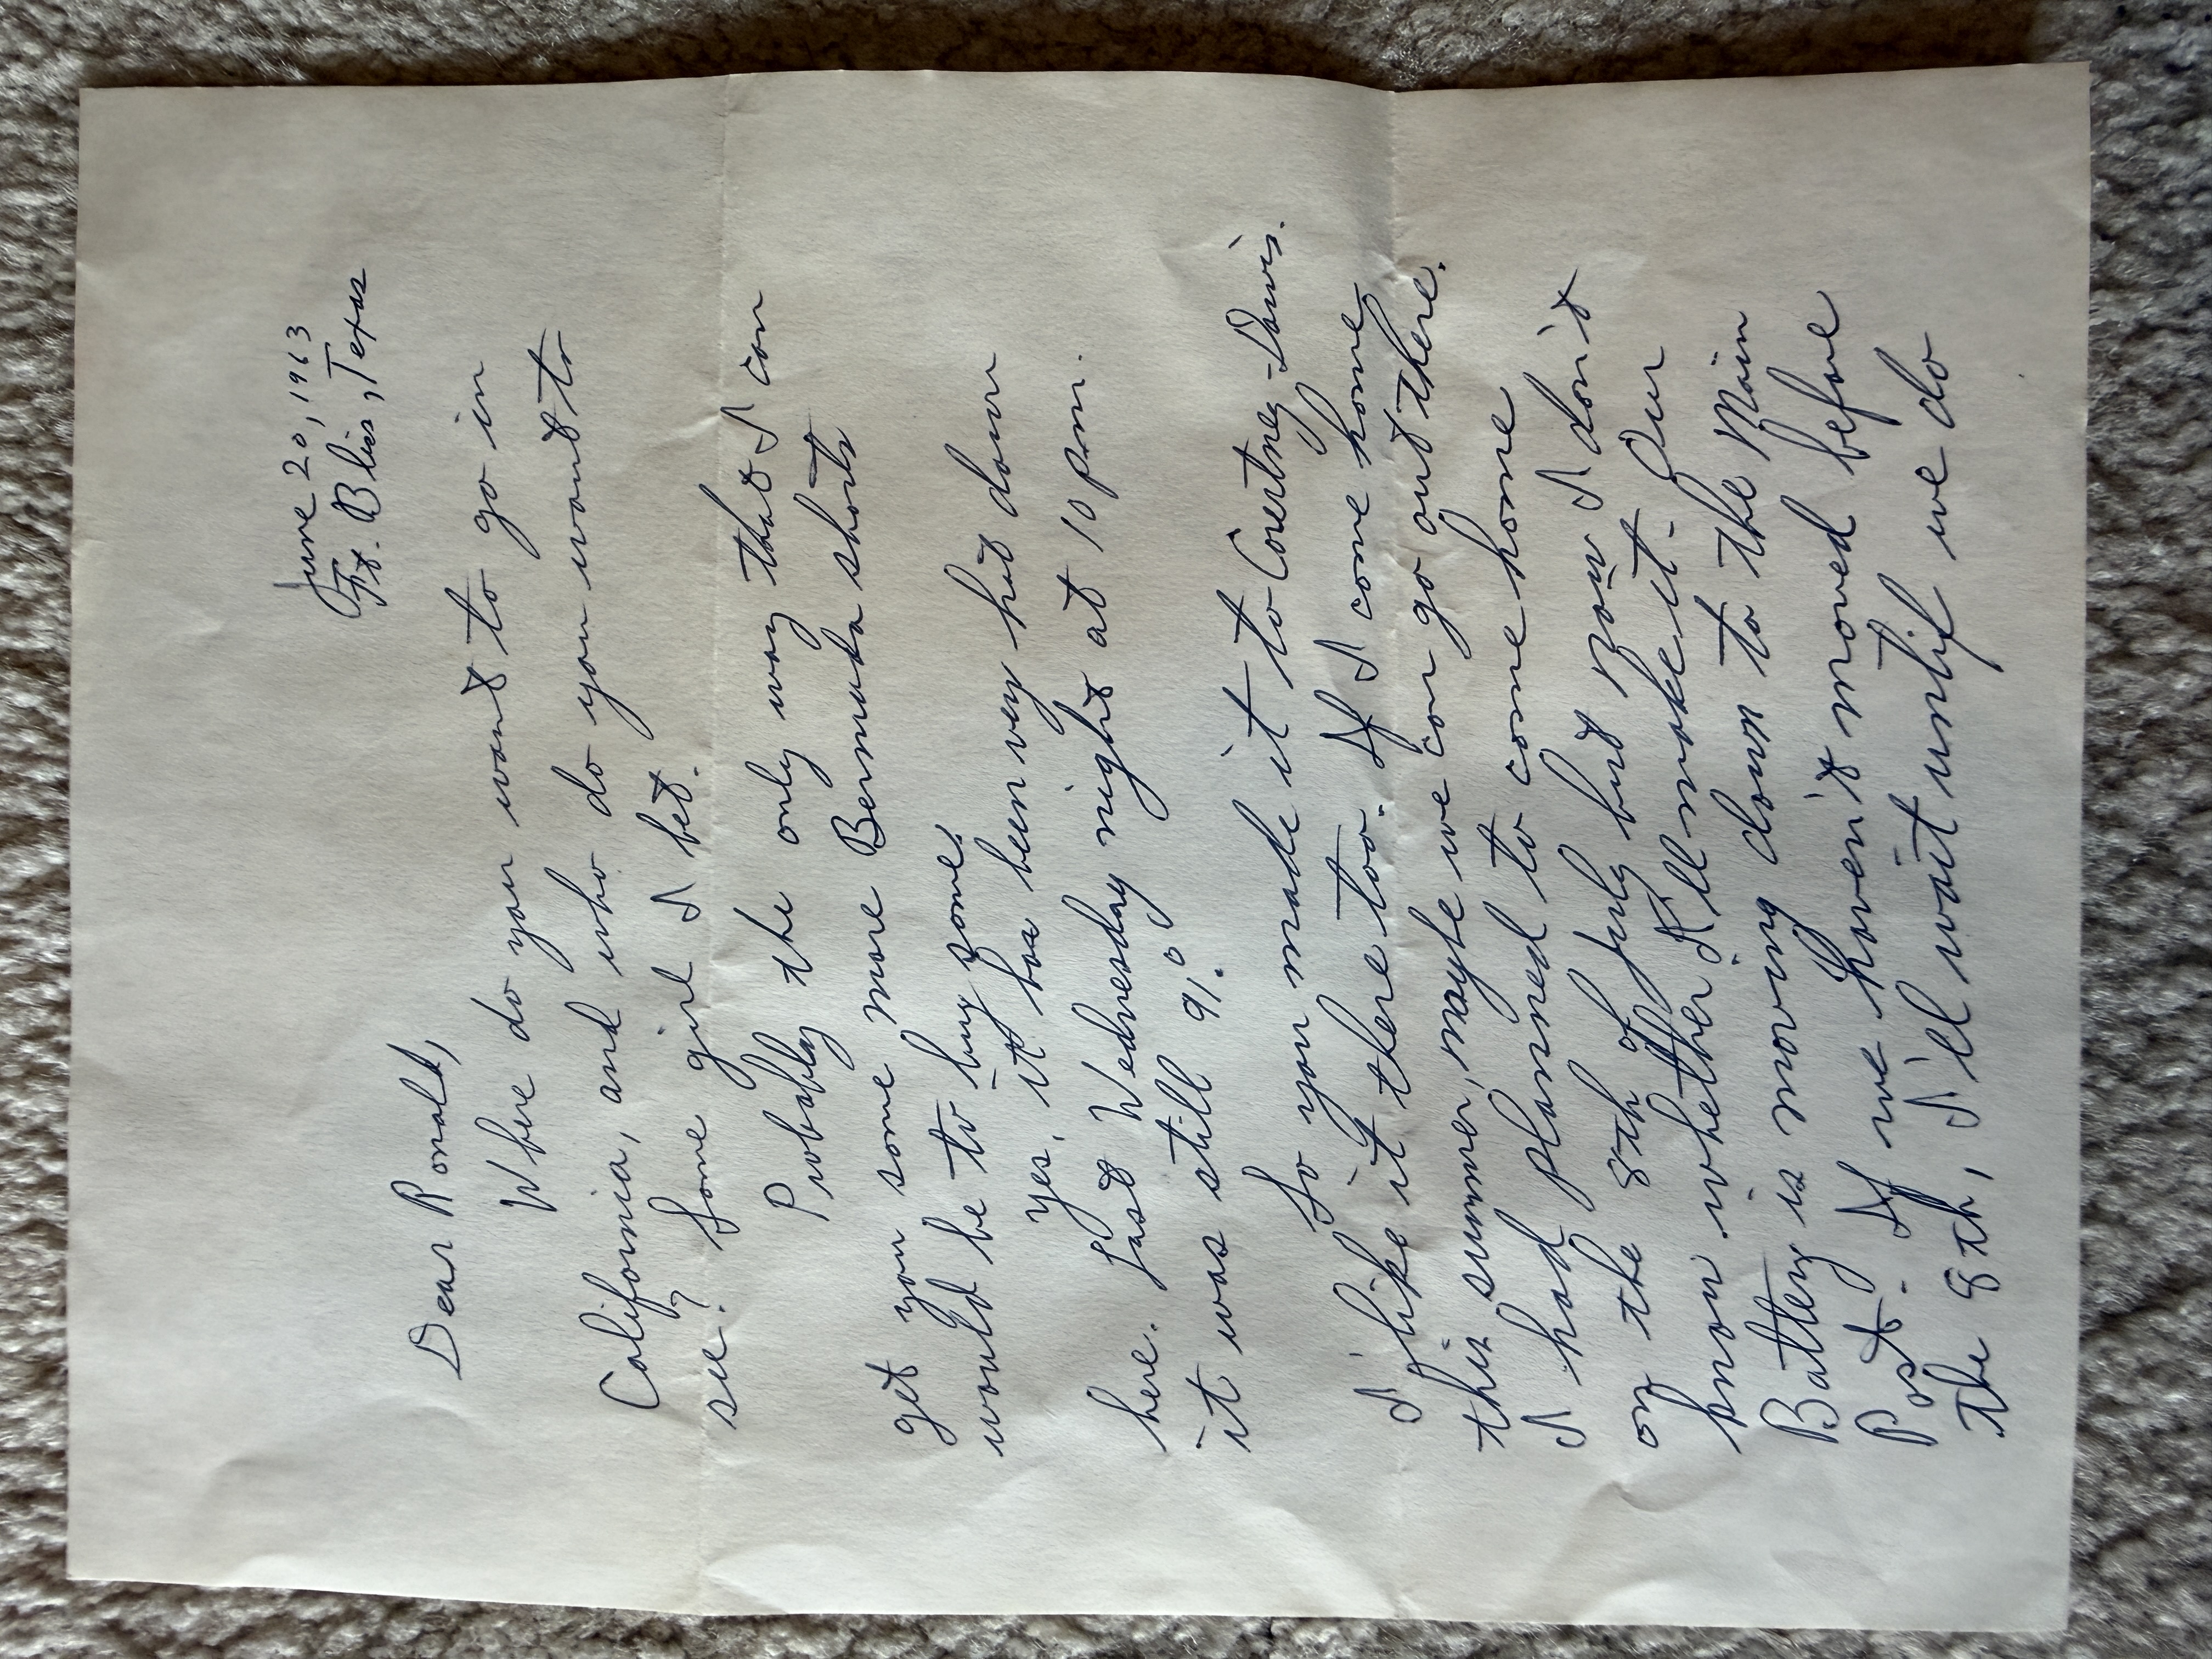 June 20, 1963
Ft. Bliss, Texas
Dear Ronald,
Where do you want to go in
California, and who do you want to
see? Some girl I bet.
Probably the only way that I can
get you some more Bermuda shorts
would be to buy some.
Yes, it has been very hot down
here. Last Wednesday night at 10 pm.
it was still 91°.
So you made it to Courtney-Davis.
I like it there too. If I come home
this summer, maybe we can go out there.
I had planned to come home
on the 8th of July but now I don't
know whether I'll make it. Our
Battery is moving down to the Main
Post. If we haven't moved before
the 8th, I'll wait until we do